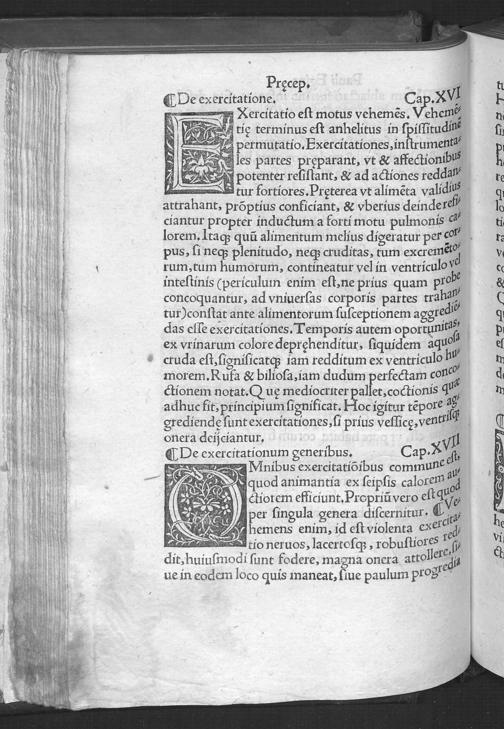 Pręcep.
⸿De exercitatione. Cap.XVI
EXercitatio est motus vehemẽs. Vehemẽ
tię terminus est anhelitus in spissitudinẽ
permutatio. Exercitationes, instrumenta
les partes pręparant, vt & affectionibus
potenter resistant, & ad actiones reddan
tur fortiores. Pręterea vt alimẽta validius
attrahant, prõptius conficiant, & vberius deinde refi
ciantur propter inductum a forti motu pulmonis ca
lorem. Itaqꝫ quũ alimentum melius digeratur per cor
pus, si neqꝫ plenitudo, neqꝫ cruditas, tum excremẽto
rum, tum humorum, contineatur vel in ventriculo vel
intestinis (periculum enim est, ne prius quam probe
concoquantur, ad vniuersas corporis partes trahan
tur) constat ante alimentorum susceptionem aggrediẽ
das esse exercitationes. Temporis autem oportunitas,
ex vrinarum colore depręhenditur, siquidem aquosa
cruda est, significatqꝫ iam redditum ex ventriculo hu
morem. Rufa & biliosa, iam dudum perfectam conco
ctionem notat. Quę mediocriter pallet, coctionis quæ
adhuc fit, principium significat. Hoc igitur tẽpore ag
grediendę sunt exercitationes, si prius vessicę, ventrisqꝫ
onera deijciantur.
⸿De exercitationum generibus. Cap.XVII
OMnibus exercitatiõibus commune est,
quod animantia ex seipsis calorem au
ctiorem efficiunt. Propriũ vero est quod
per singula genera discernitur. ⸿Ve
hemens enim, id est violenta exercita
tio neruos, lacertosqꝫ, robustiores red
dit, huiusmodi sunt fodere, magna onera attollere, si
ue in eodem loco quis maneat, siue paulum progredia